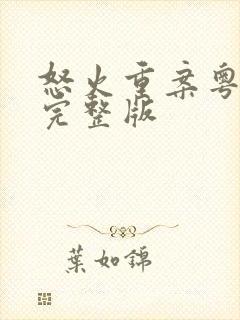 怒火重案粤
完整版
葉如錦